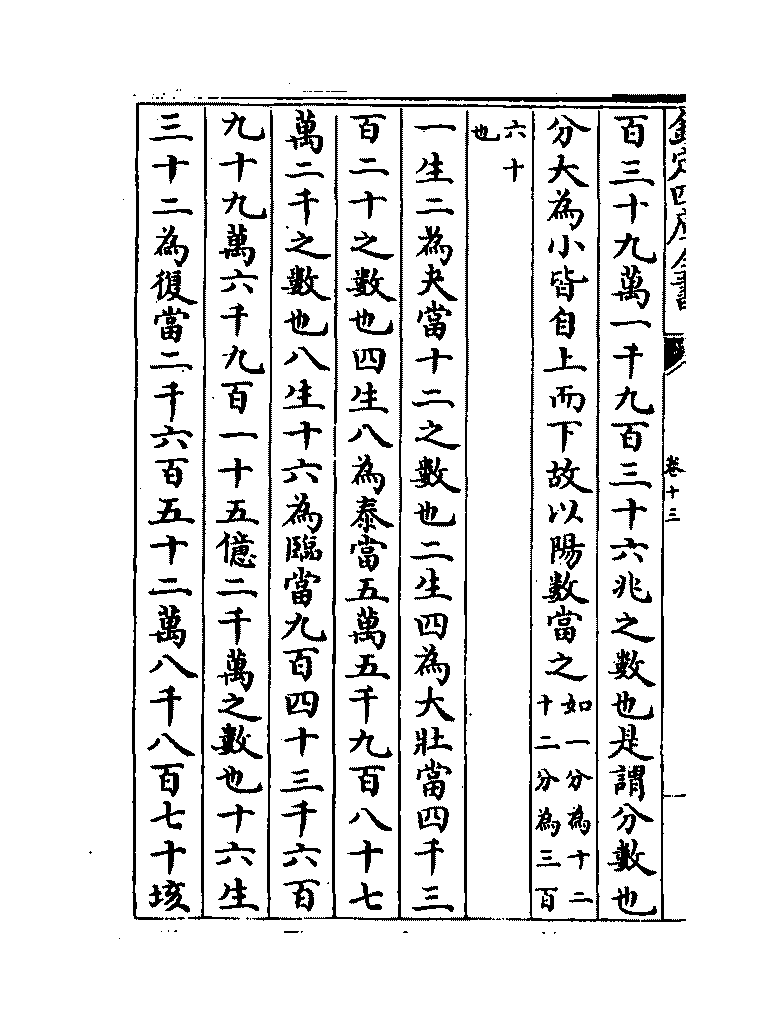 欽定四庫全書
卷十三
百三十九萬一千九百三十六兆之數也是謂分數也
分大為小皆自上而下故以陽數當之如一分為十二
十二分為三百
六十
也
一生二為夬當十二之數也二生四為大壯當四千三
百二十之數也四生八為泰當五萬五千九百八十七
萬二千之數也八生十六為臨當九百四十三千六百
九十九萬六千九百一十五億二千萬之數也十六生
三十二為復當二千六百五十二萬八千八百七十垓